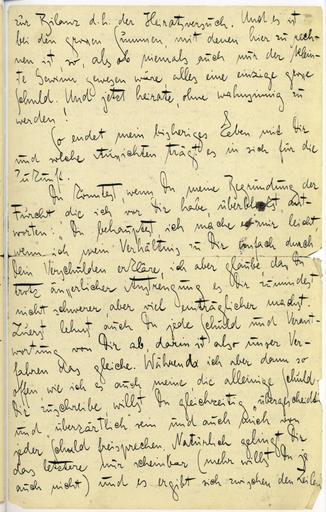 zur Bilanz d. h. der Heiratsversuch. Und es ist
bei den grossen Summen, mit denen hier zu rech-
nen ist so, als ob niemals auch nur der klein-
ste Gewinn gewesen wäre, alles eine einzige grosse
Schuld. Und jetzt heirate, ohne wahnsinnig zu
werden!
So endet mein bisheriges Leben mit Dir
und solche Aussichten trägt es in sich für die
Zukunft.
Du könntest, wenn Du meine Begründung der
Furcht die ich vor Dir habe überblickst ant-
worten: Du behauptest ich mache es mir leicht
wenn ich mein Verhältnis zu Dir einfach durch
Dein Verschulden erkläre, ich aber glaube das Du
trotz äusserlicher Anstrengung es Dir zumindest
nicht schwerer aber viel einträglicher machst.
Zuerst lehnst auch Du jede Schuld und Verant-
wortung von Dir ab darin ist also unser Ver-
fahren das gleiche. Während ich aber dann so
offen wie ich es auch meine die alleinige Schuld
Dir zuschreibe, willst Du gleichzeitig übergescheidt
und überzärtlich sein und auch mich von
jeder Schuld freisprechen. Natürlich gelingt Dir
das letztere nur scheinbar (mehr willst Du ja
auch nicht) und es ergibt sich zwischen den Zeilen